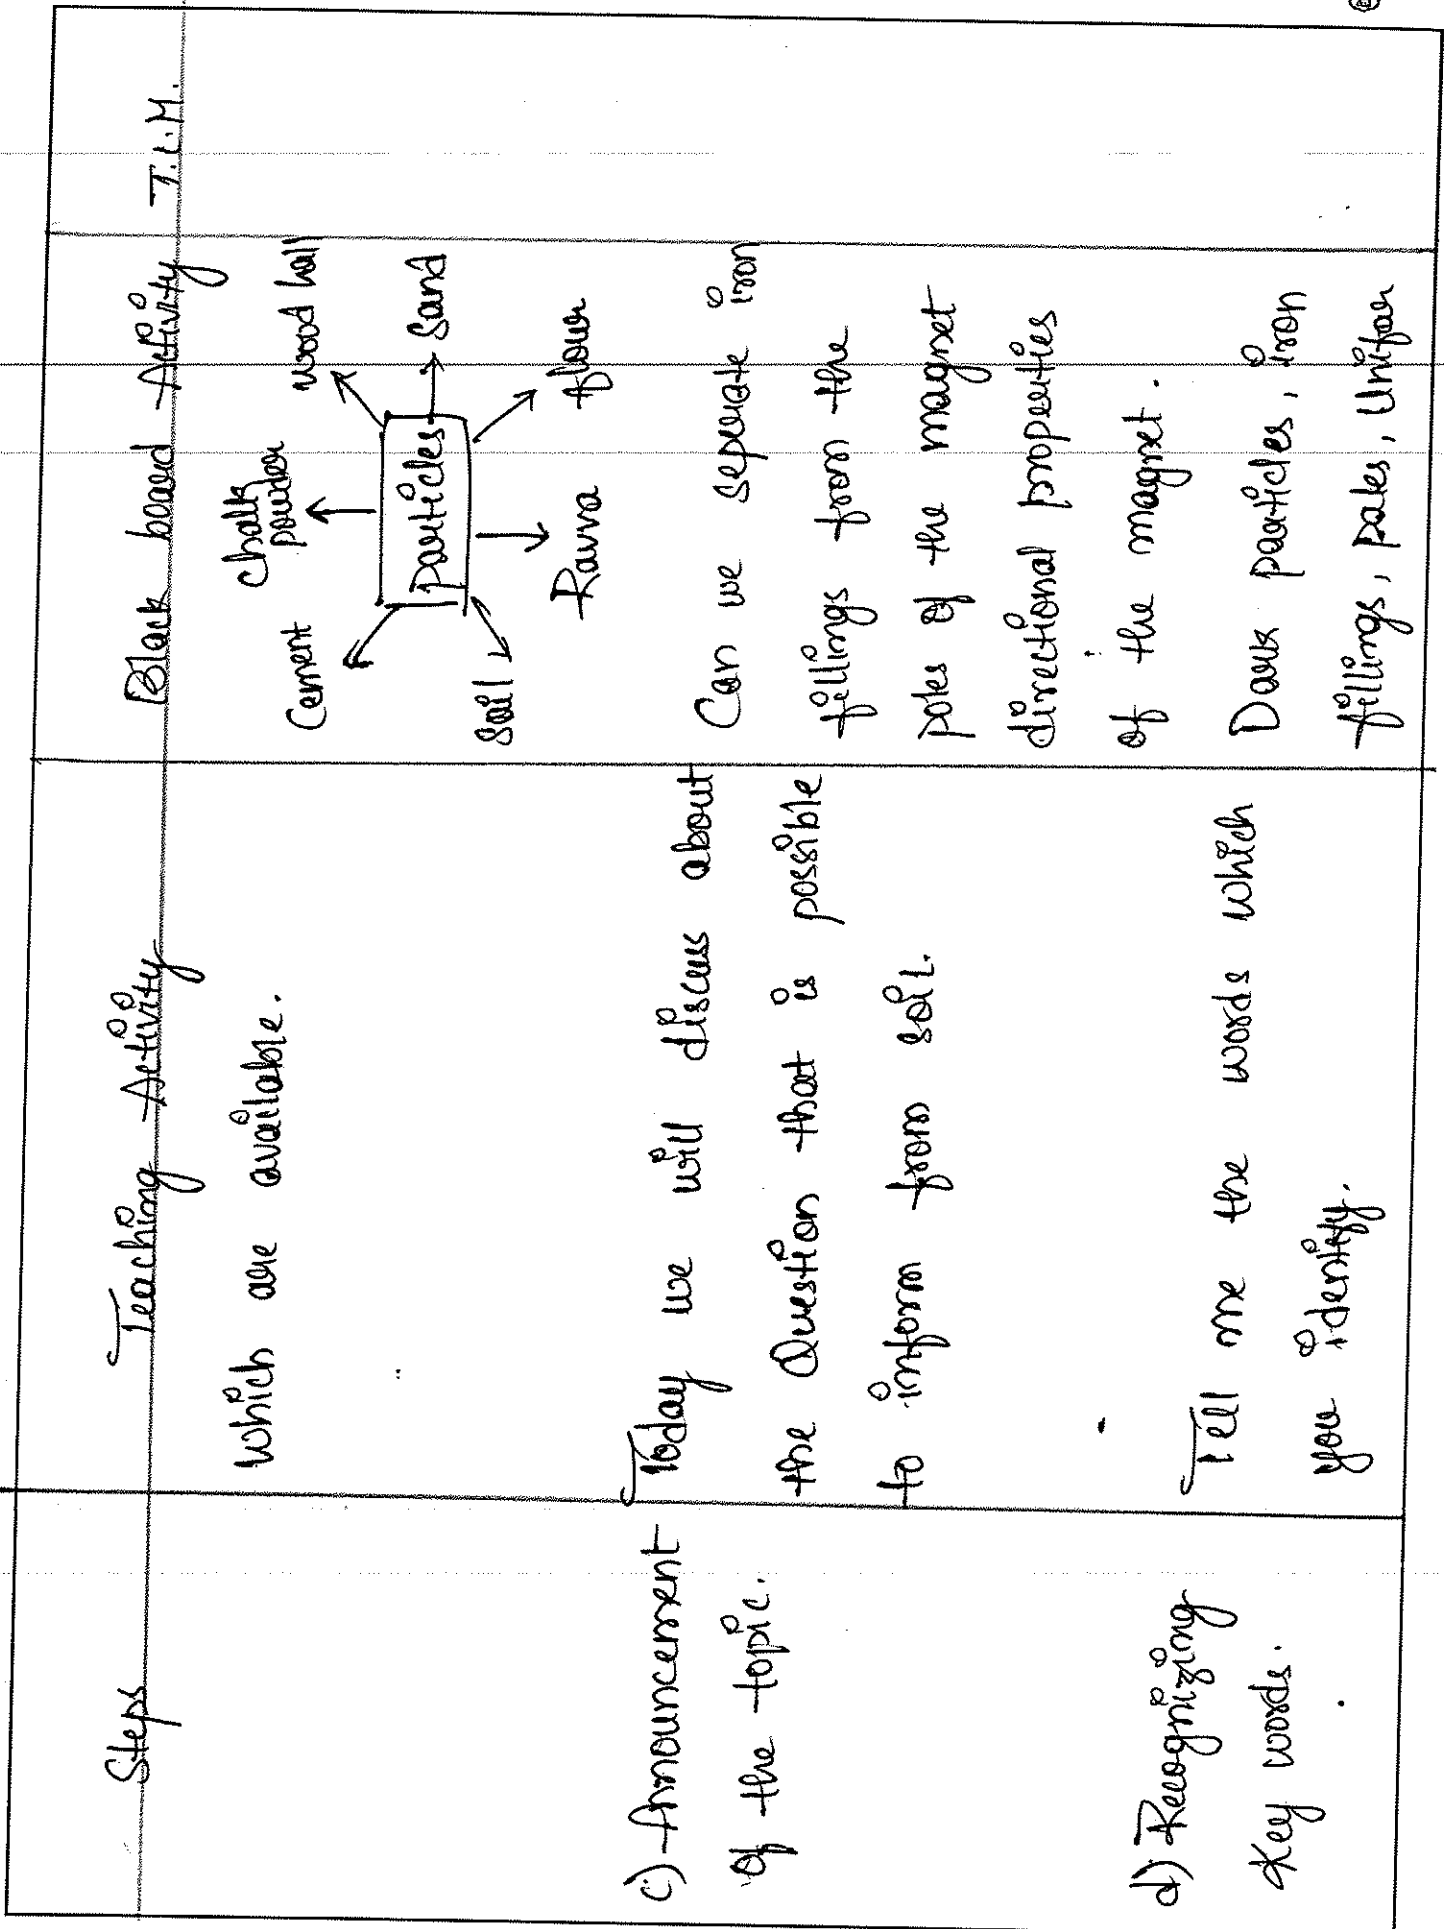 Steps
Teaching Activity
Black board Activity
T.L.M.
which are available.
Cement
Chalk
powder
wood ball
Particles
Sand
Soil
Ravva
flour
c) Announcement
of the topic.
Today we will discuss about
the Question that is possible
to inform from soil.
Can we seperate iron
fillings from the
poles of the magnet
directional properties
of the magnet.
d) Recognizing
Key words.
Tell me the words which
you identify.
Dark particles, iron
fillings, poles, Unifar